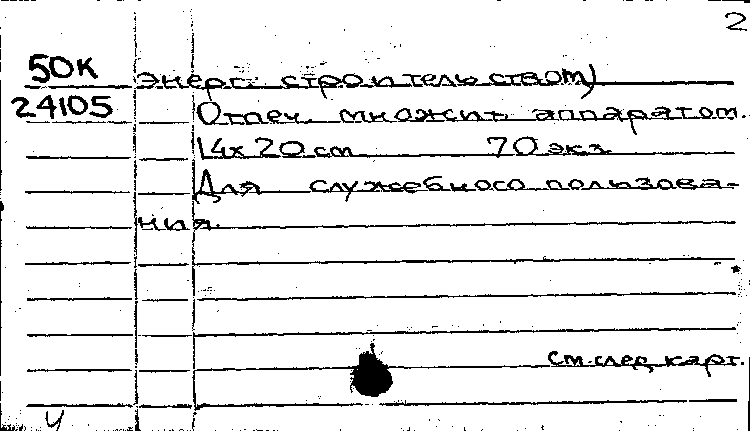 2
50К энерг. строительством)
24105 Отпеч. множит. аппаратом.
14х20 см 70 экз.
Для служебного пользова-
ния.
См. след. карт.